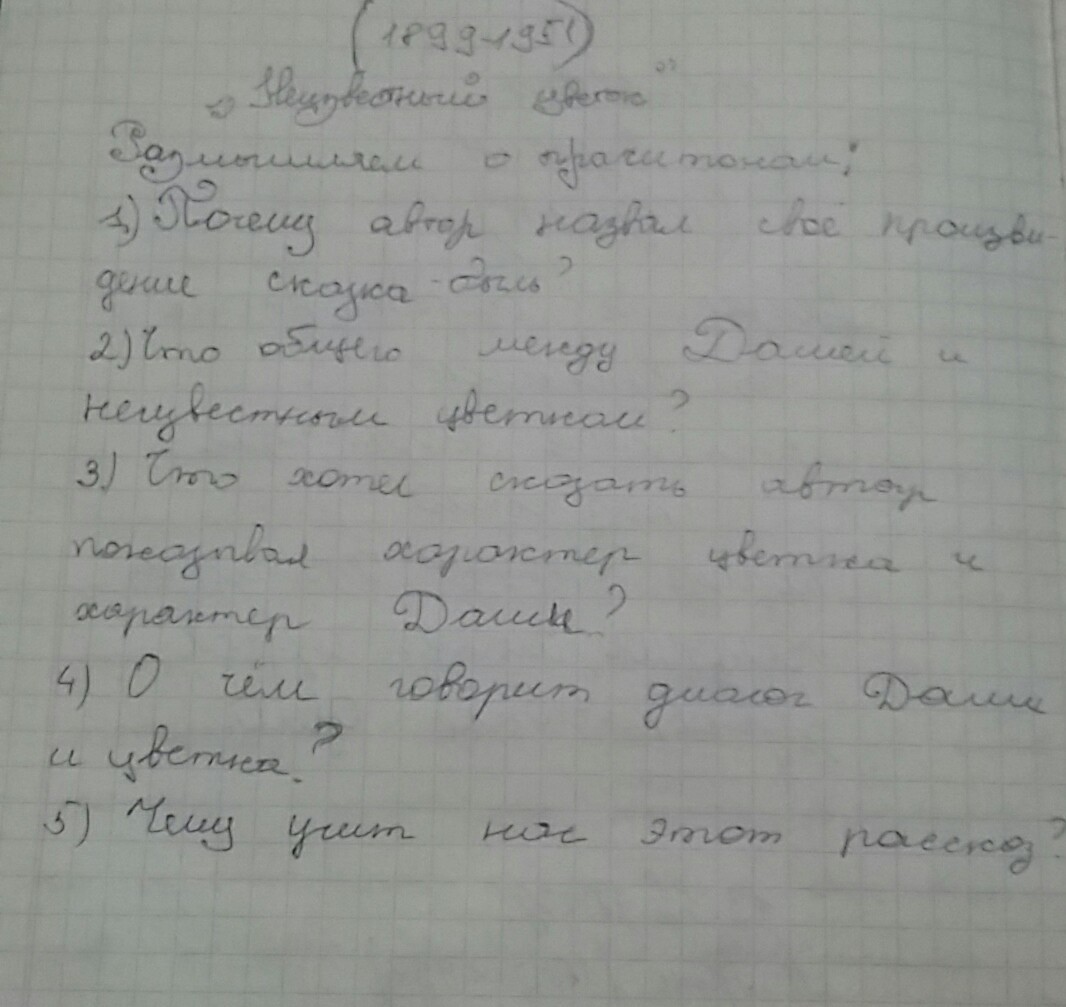 (1899-1951)
"Неизвестный цветок"
Размышляем о прочитоном:
1) Почему автор назвал своё произве-
дение сказка-быль?
2) Что общего между Дашей и
неизвестным цветком?
3) Что хотел сказать автор
показывая характер цветка и
характер Даши?
4) О чём говорит диалог Даши
и цветка?
5) Чему учит нас этот рассказ?